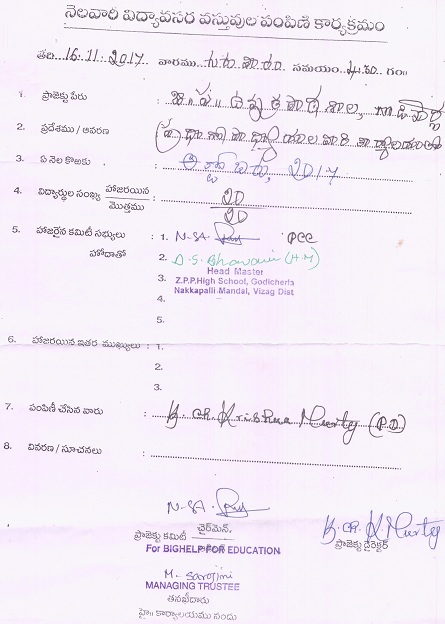 నెలవారీ విద్యావసర వస్తువుల పంపిణీ కార్యక్రమం
తేది. 16.11.2017 వారము గురువారం సమయం 4.30 గం॥
1. ప్రాజెక్టు పేరు : జి॥ప॥ ఉన్నత పాఠశాల, గొడిచర్ల
2. ప్రదేశము / ఆవరణ : ప్రధానోపాధ్యాయుల వారి కార్యాలయం
3. ఏ నెల కొఱకు : అక్టోబర్, 2017
4. విద్యార్థుల సంఖ్య హాజరయిన / మొత్తము : 20 / 20
5. హాజరైన కమిటీ సభ్యులు : 1. PCC
హోదాతో 2. D.S. Bhavani (H.M)
Head Master
3. Z.P.P.High School, Godicherla
Nakkapalli Mandal, Vizag Dist
4.
5.
6. హాజరయిన ఇతర ముఖ్యులు : 1.
2.
3.
7. పంపిణీ చేసిన వారు : K. Ch. Krishna Murty (P.D)
8. వివరణ / సూచనలు :
ప్రాజెక్టు కమిటీ ఛైర్మెన్,
K. Ch. K. Murty
ప్రాజెక్టు డైరెక్టర్
For BiGHELP FOR EDUCATION
M. Sarojini
MANAGING TRUSTEE
తనఖీదారు
హై॥ కార్యాలయము నందు